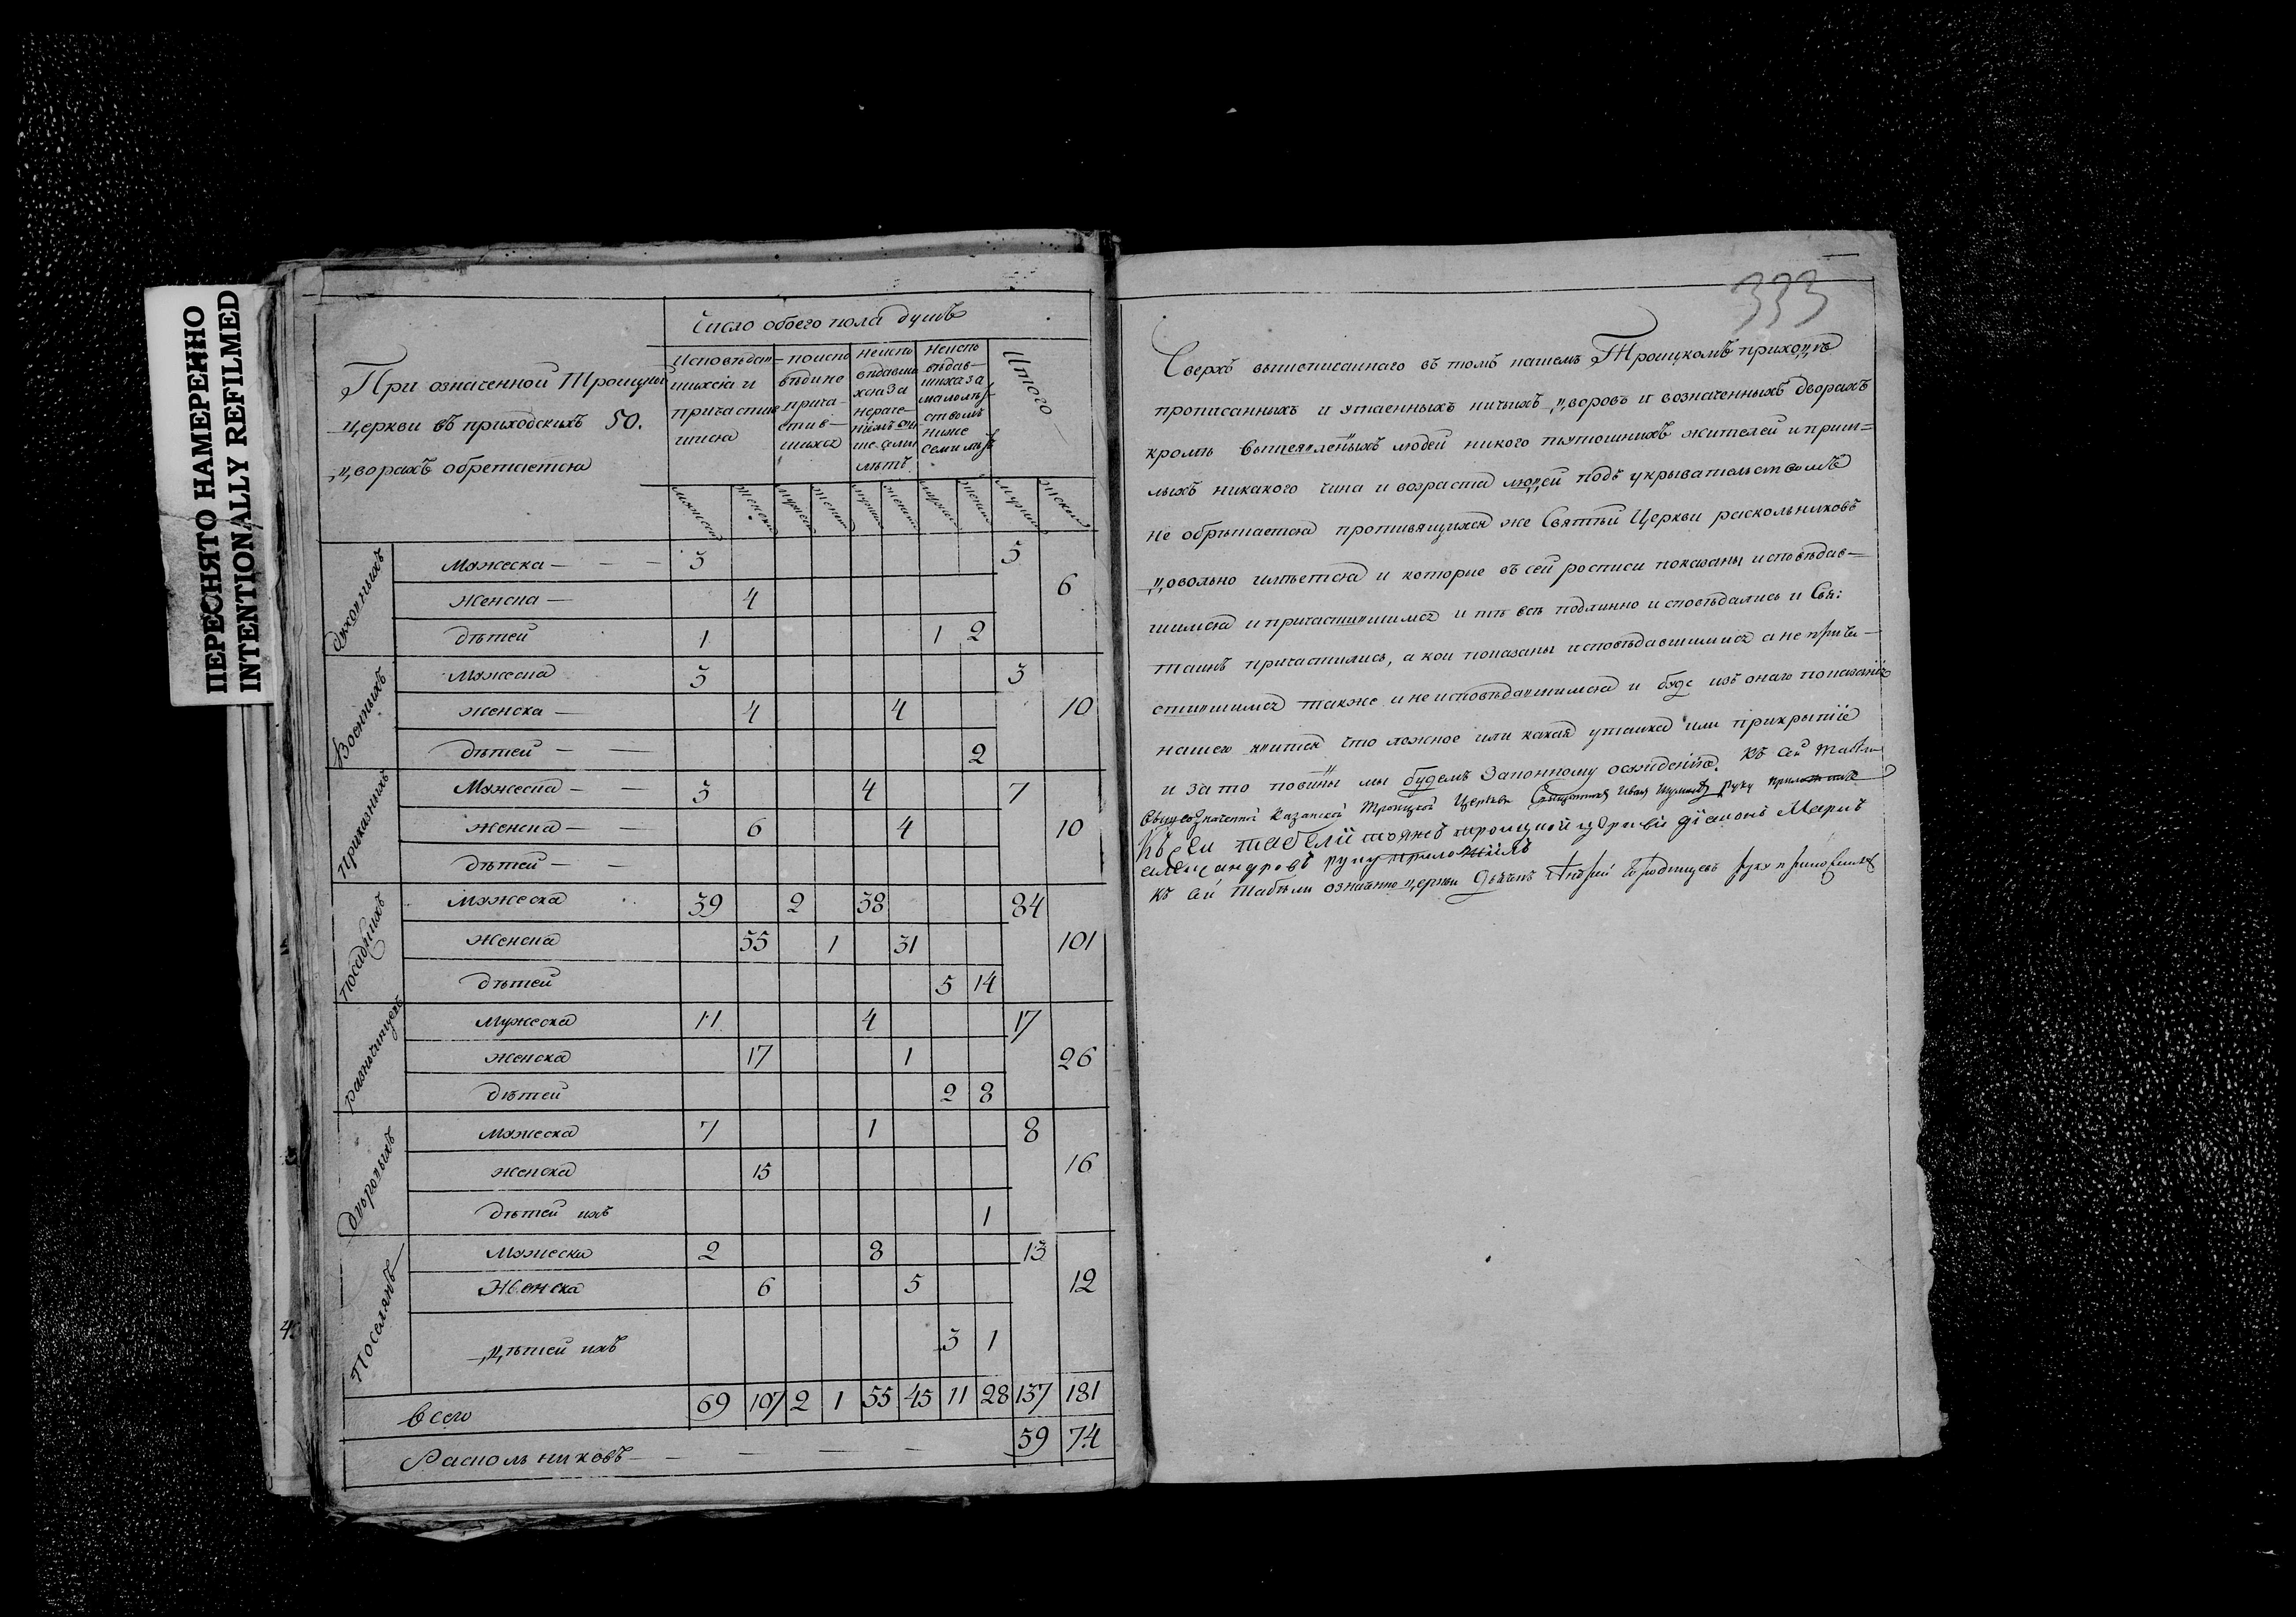 ПЕРЕСНЯТО НАМЕРЕННО
INTENTIONALLY REFILMED
Число обоего пола душъ
При означенной Троицкой
церкви въ приходскихъ 50.
дворахъ обретается
Исповѣдав-
шихся и
причастив
шихся
поиспо
вѣди не
прича-
стив-
шихся
неиспо
вѣдавши
хся за
нераче-
ніемъ
лѣтъ
неиспо
вѣдав-
шихся за
малолѣт-
ствомъ
ниже
семи лѣтъ
Итого
Духовныхъ
Мужеска 3 5
Женска 4 6
дѣтей 1 1 2
Военныхъ
Мужеска 3 3
женска 4 4 10
дѣтей 2
Приказныхъ
Мужеска 3 4 7
женска 6 4 10
дѣтей
Посадскихъ
Мужеска 39 2 38 84
Женска 55 1 31 101
дѣтей 5 14
разночинцевъ
Мужеска 11 4 17
женска 17 1 26
дѣтей 2 8
Дворовыхъ
мужеска 7 1 8
женска 15 16
дѣтей ихъ 1
Поселянъ
Мужеска 2 8 13
Женска 6 5 12
дѣтей ихъ 3 1
всего 69 107 2 1 55 45 11 28 137 181
Раскольниковъ 59 74
333
Сверхъ вышеписаннаго въ томъ нашемъ Троицкомъ приходѣ
прописанныхъ и утаенныхъ ничьихъ дворовъ и возначенныхъ дворахъ
кромѣ вышеявленыхъ людей никого тутошнихъ жителей и приш=
лыхъ никакого чина и возраста людей подъ укрывательствомъ
не обрѣтается противящихся же Святѣй Церкви раскольниковъ
довольно имѣется и которые въ сей росписи показаны исповѣдав-
шимися и причастившимися и тѣ всѣ подлинно исповѣдались и Свя:
таинъ причастились, а кои показаны исповѣдавшимися а не прича-
стившимися также и не исповѣдавшимися и буде изъ онаго показанія
нашего явится что ложное или какая утайка или прикрытіе
и за то повинны мы будемъ законному осуждению. Къ сей табели
Вышеозначенной Казанской Троицкой Церкви Священникъ Иванъ руку приложилъ
Къ сей табели тояже троицкой церкви діаконъ Марић
александровъ руку приложилъ
Къ сей табели означенно церкви Дьячекъ Андрей руку приложилъ